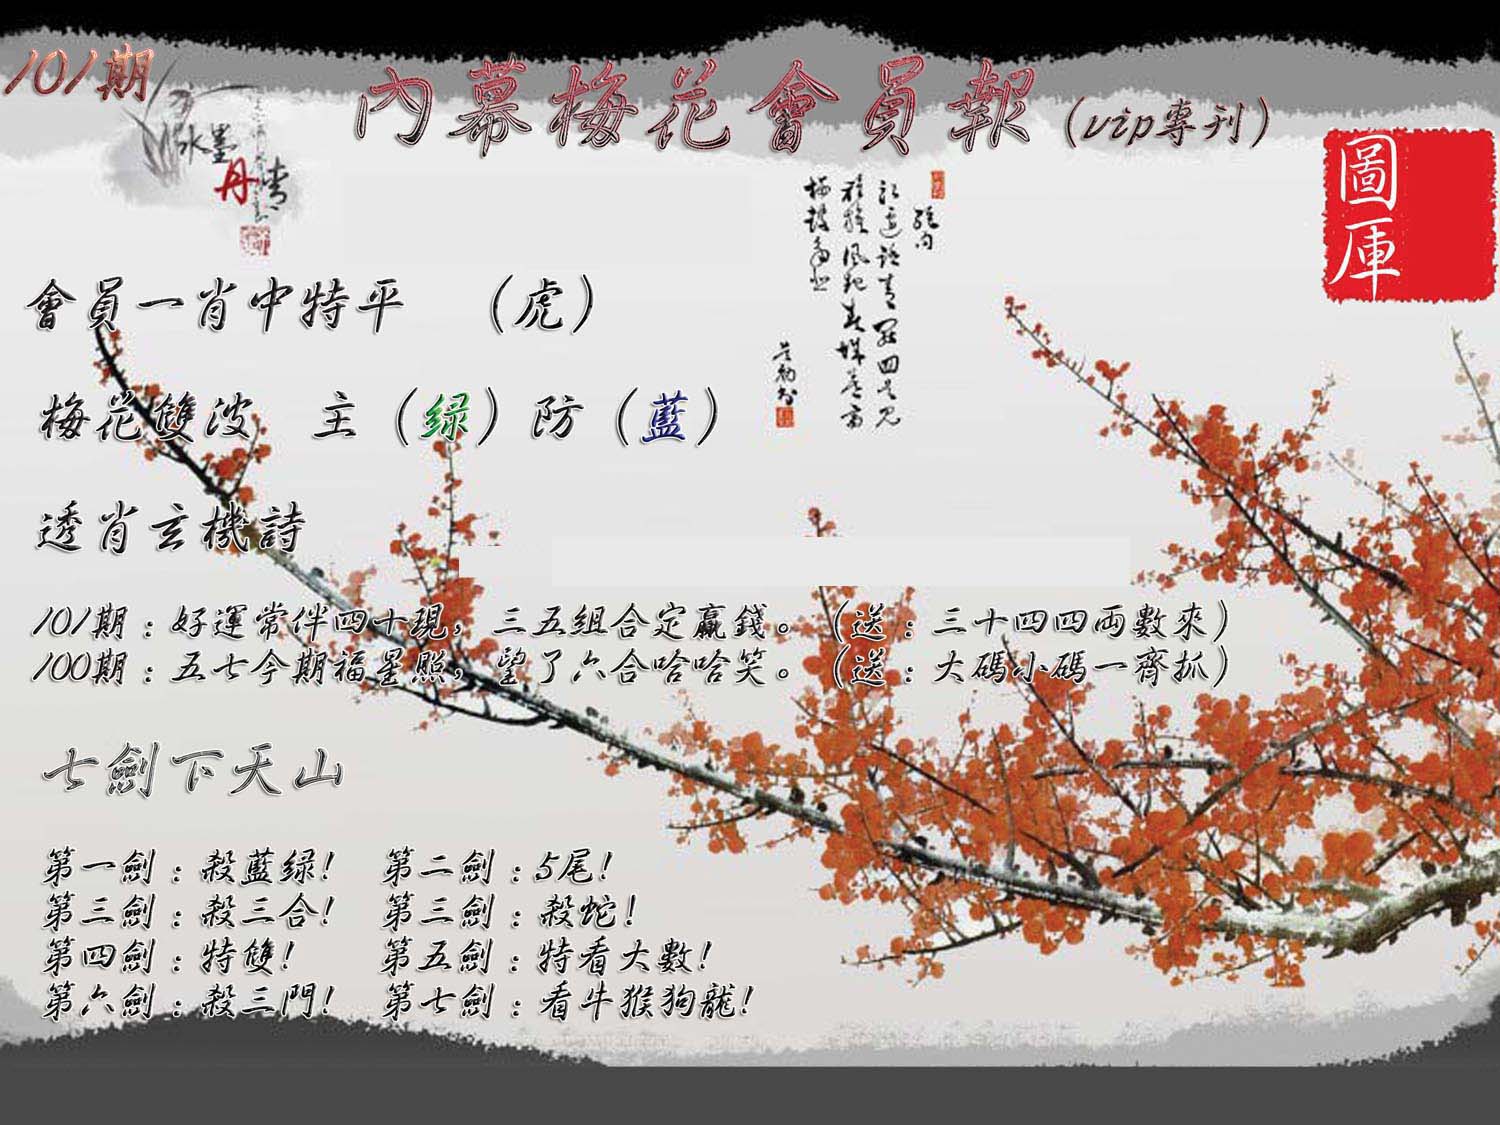 101期
內幕梅花會員報(vip專刊)
水墨
丹青
圖庫
會員一肖中特平 (虎)
梅花雙波 主(绿)防(藍)
透肖玄機詩
101期:好運常伴四十現,三五組合定贏錢。(送:三十四四両數來)
100期:五七今期福星照,望了六合哈哈笑。(送:大碼小碼一齊抓)
七劍下天山
第一劍:殺藍绿! 第二劍:5尾!
第三劍:殺三合! 第三劍:殺蛇!
第四劍:特雙! 第五劍:特看大數!
第六劍:殺三門! 第七劍:看牛猴狗龍!